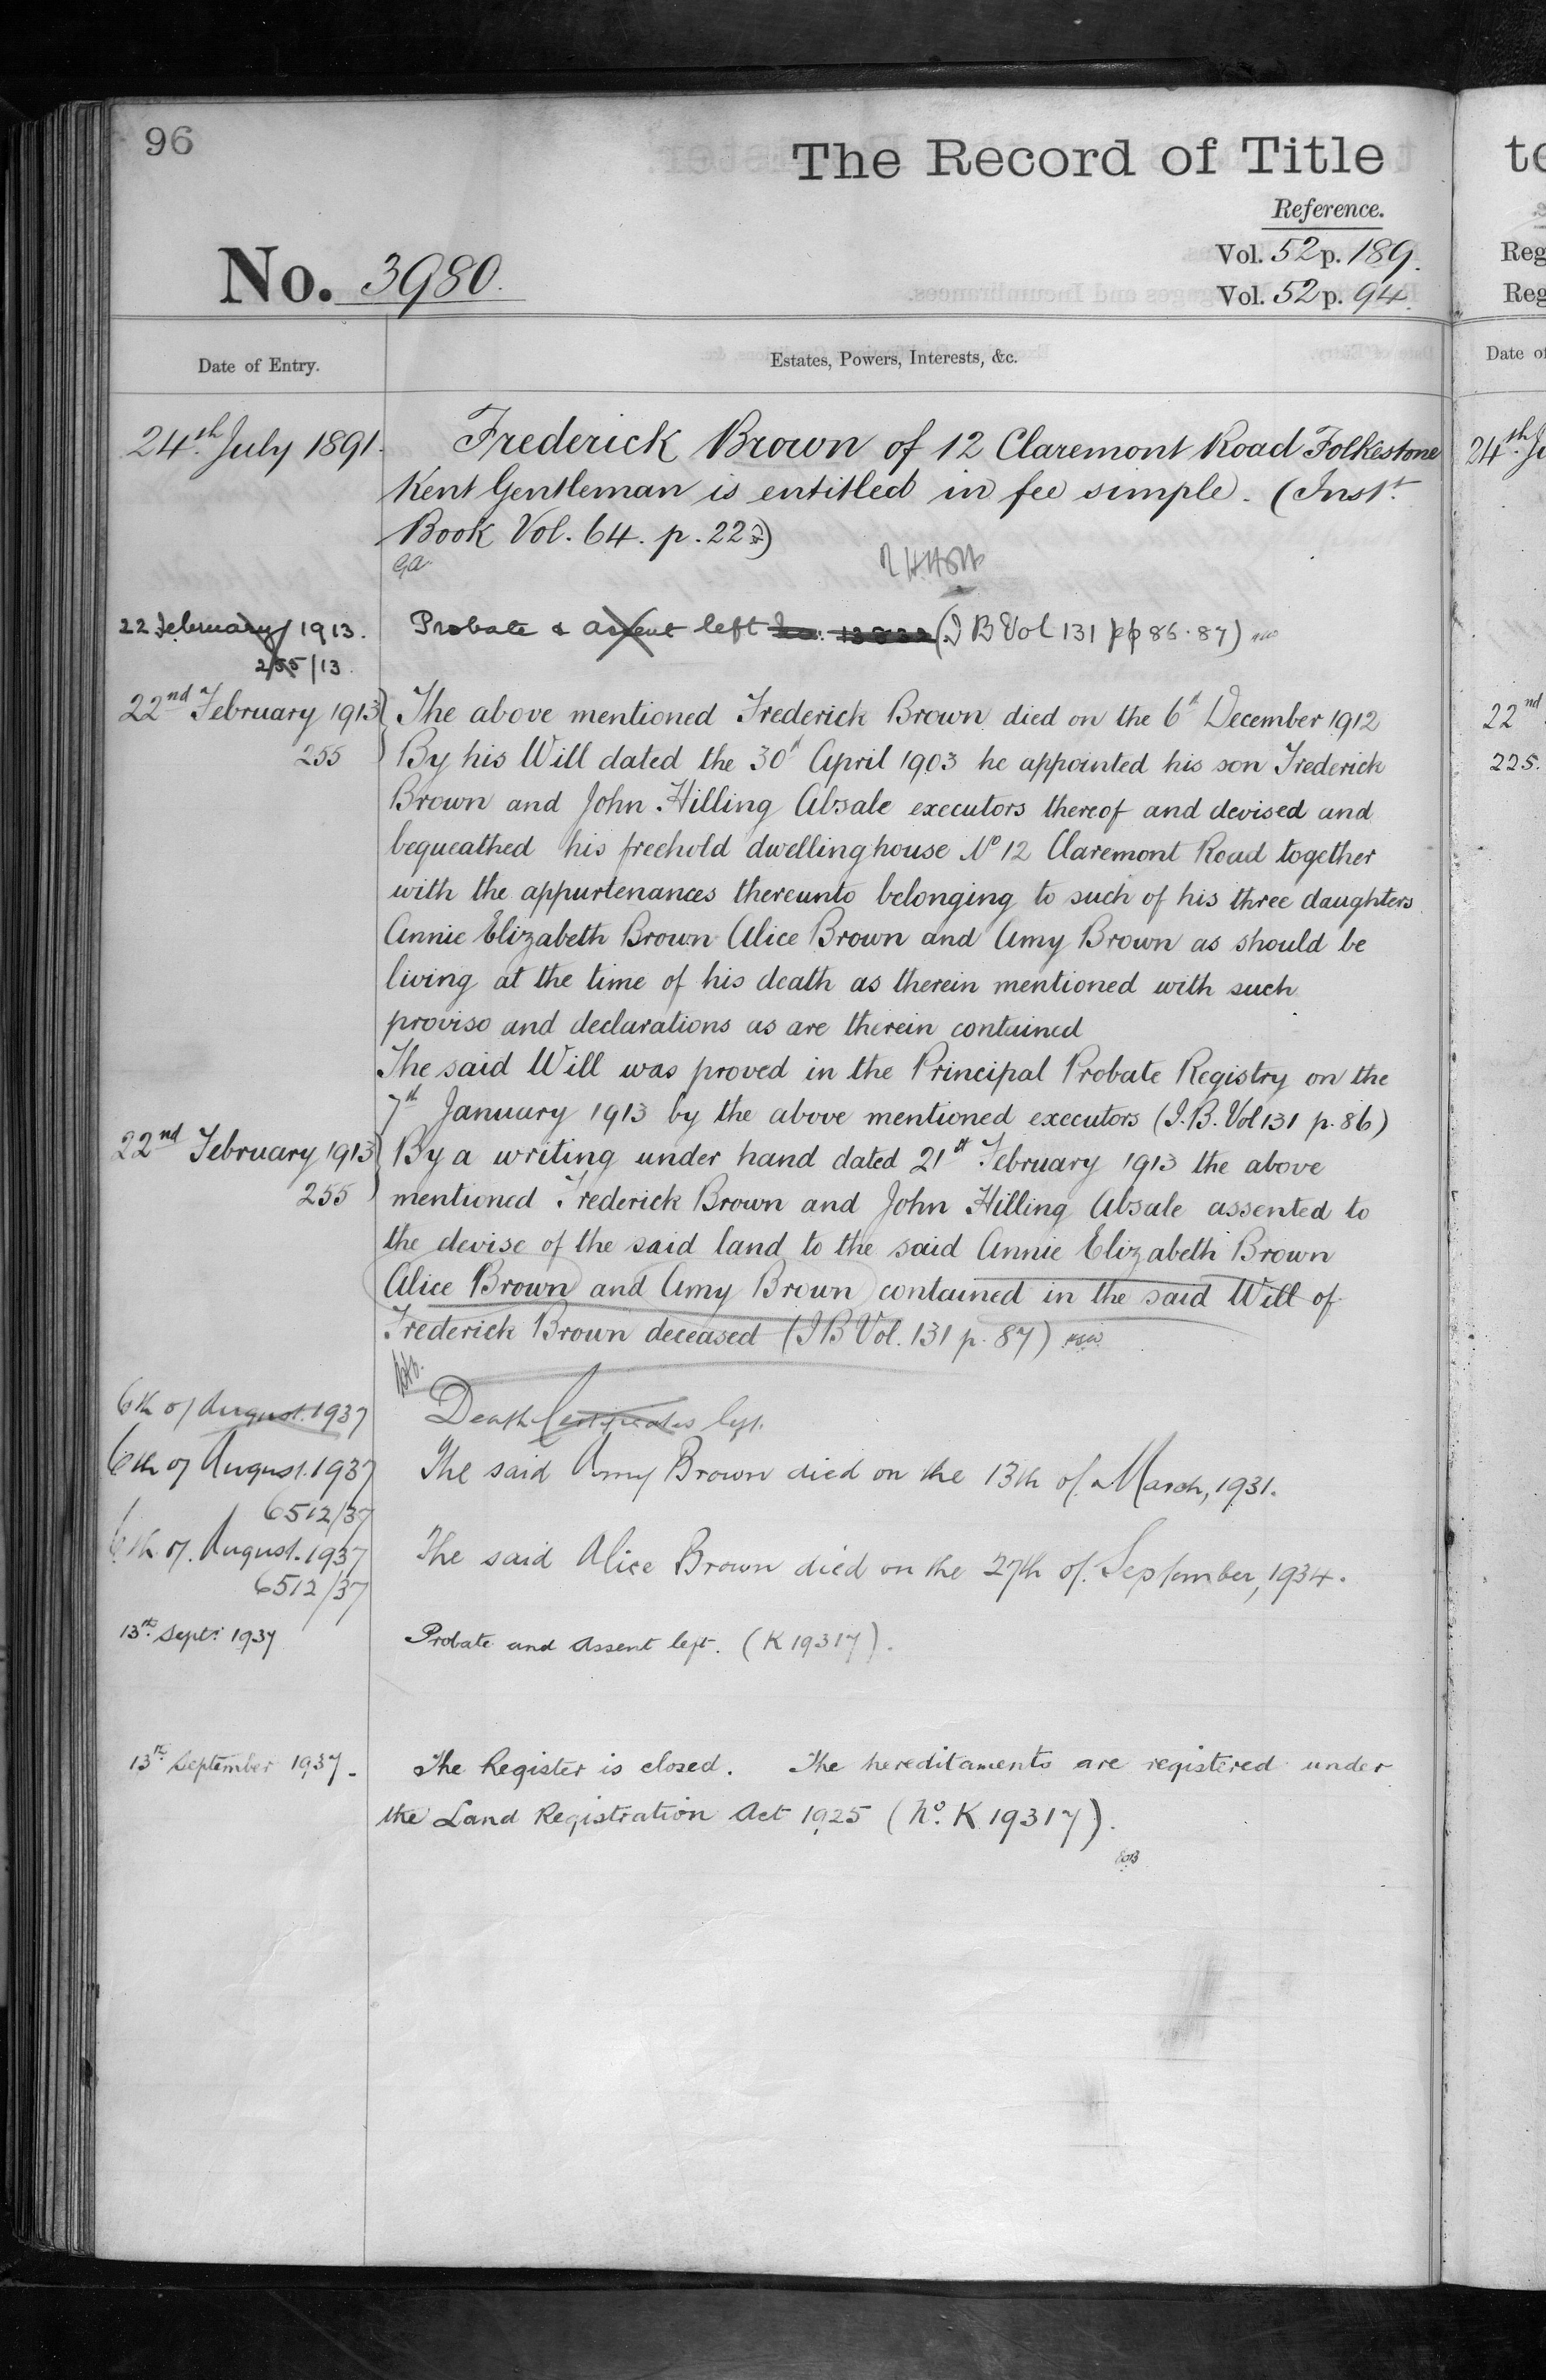 96
The Record of Title
Reference.
No. 3980.
Vol. 52 p. 189.
Vol. 52 p. 94.
Date of Entry.
Estates, Powers, Interests, &c.
24th July 1891.
Frederick Brown of 12 Claremont Road Folkestone
Kent Gentleman is entitled in fee simple. (Inst.
Book Vol. 64. p. 22
22 February 1913.
Probate & assent left (I B Vol 131 pp 86.87)
255/13
22nd February 1913
The above mentioned Frederick Brown died on the 6th December 1912
255
By his Will dated the 30th April 1903 he appointed his son Frederick
Brown and John Hilling Absale executors thereof and devised and
bequeathed his freehold dwellinghouse No 12 Claremont Road together
with the appurtenances thereunto belonging to such of his three daughters
Annie Elizabeth Brown Alice Brown and Amy Brown as should be
living at the time of his death as therein mentioned with such
proviso and declarations as are therein contained
The said Will was proved in the Principal Probate Registry on the
7th January 1913 by the above mentioned executors (I.B. Vol 131 p. 86)
22nd February 1913
By a writing under hand dated 21st February 1913 the above
255
mentioned Frederick Brown and John Hilling Absale assented to
the devise of the said land to the said Annie Elizabeth Brown
Alice Brown and Amy Brown contained in the said Will of
Frederick Brown deceased (I B Vol. 131 p. 87)
6th of August. 1937
Death Certificates left.
6th of August. 1937
The said Amy Brown died on the 13th of March, 1931.
6512/37
6th of August. 1937
The said Alice Brown died on the 27th of September, 1934.
6512/37
13th Sept: 1937
Probate and Assent left. (K 19317).
13th September 1937.
The Register is closed. The hereditaments are registered under
the Land Registration Act 1925 (No. K 19317).
to
Reg
Reg
Date of
24th Ju
22nd
225.